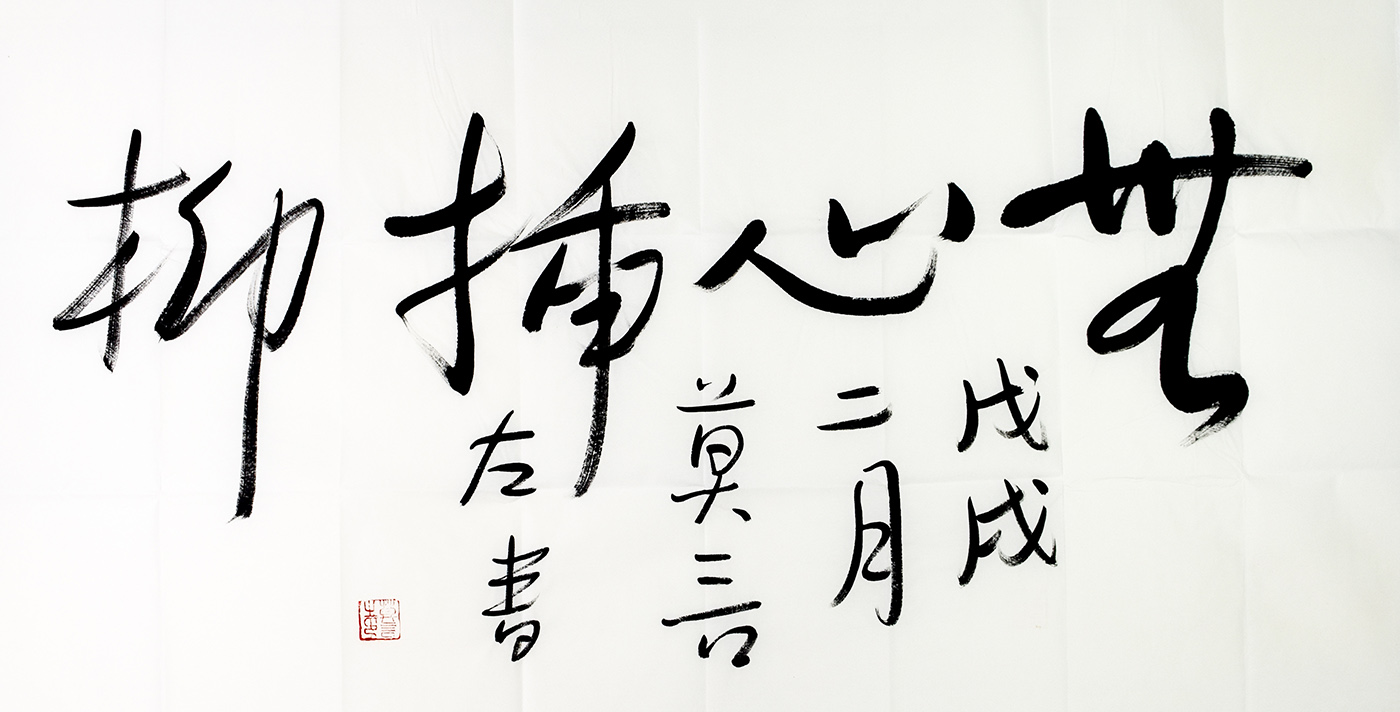 無心插柳
戊戌
二月
莫言
左書